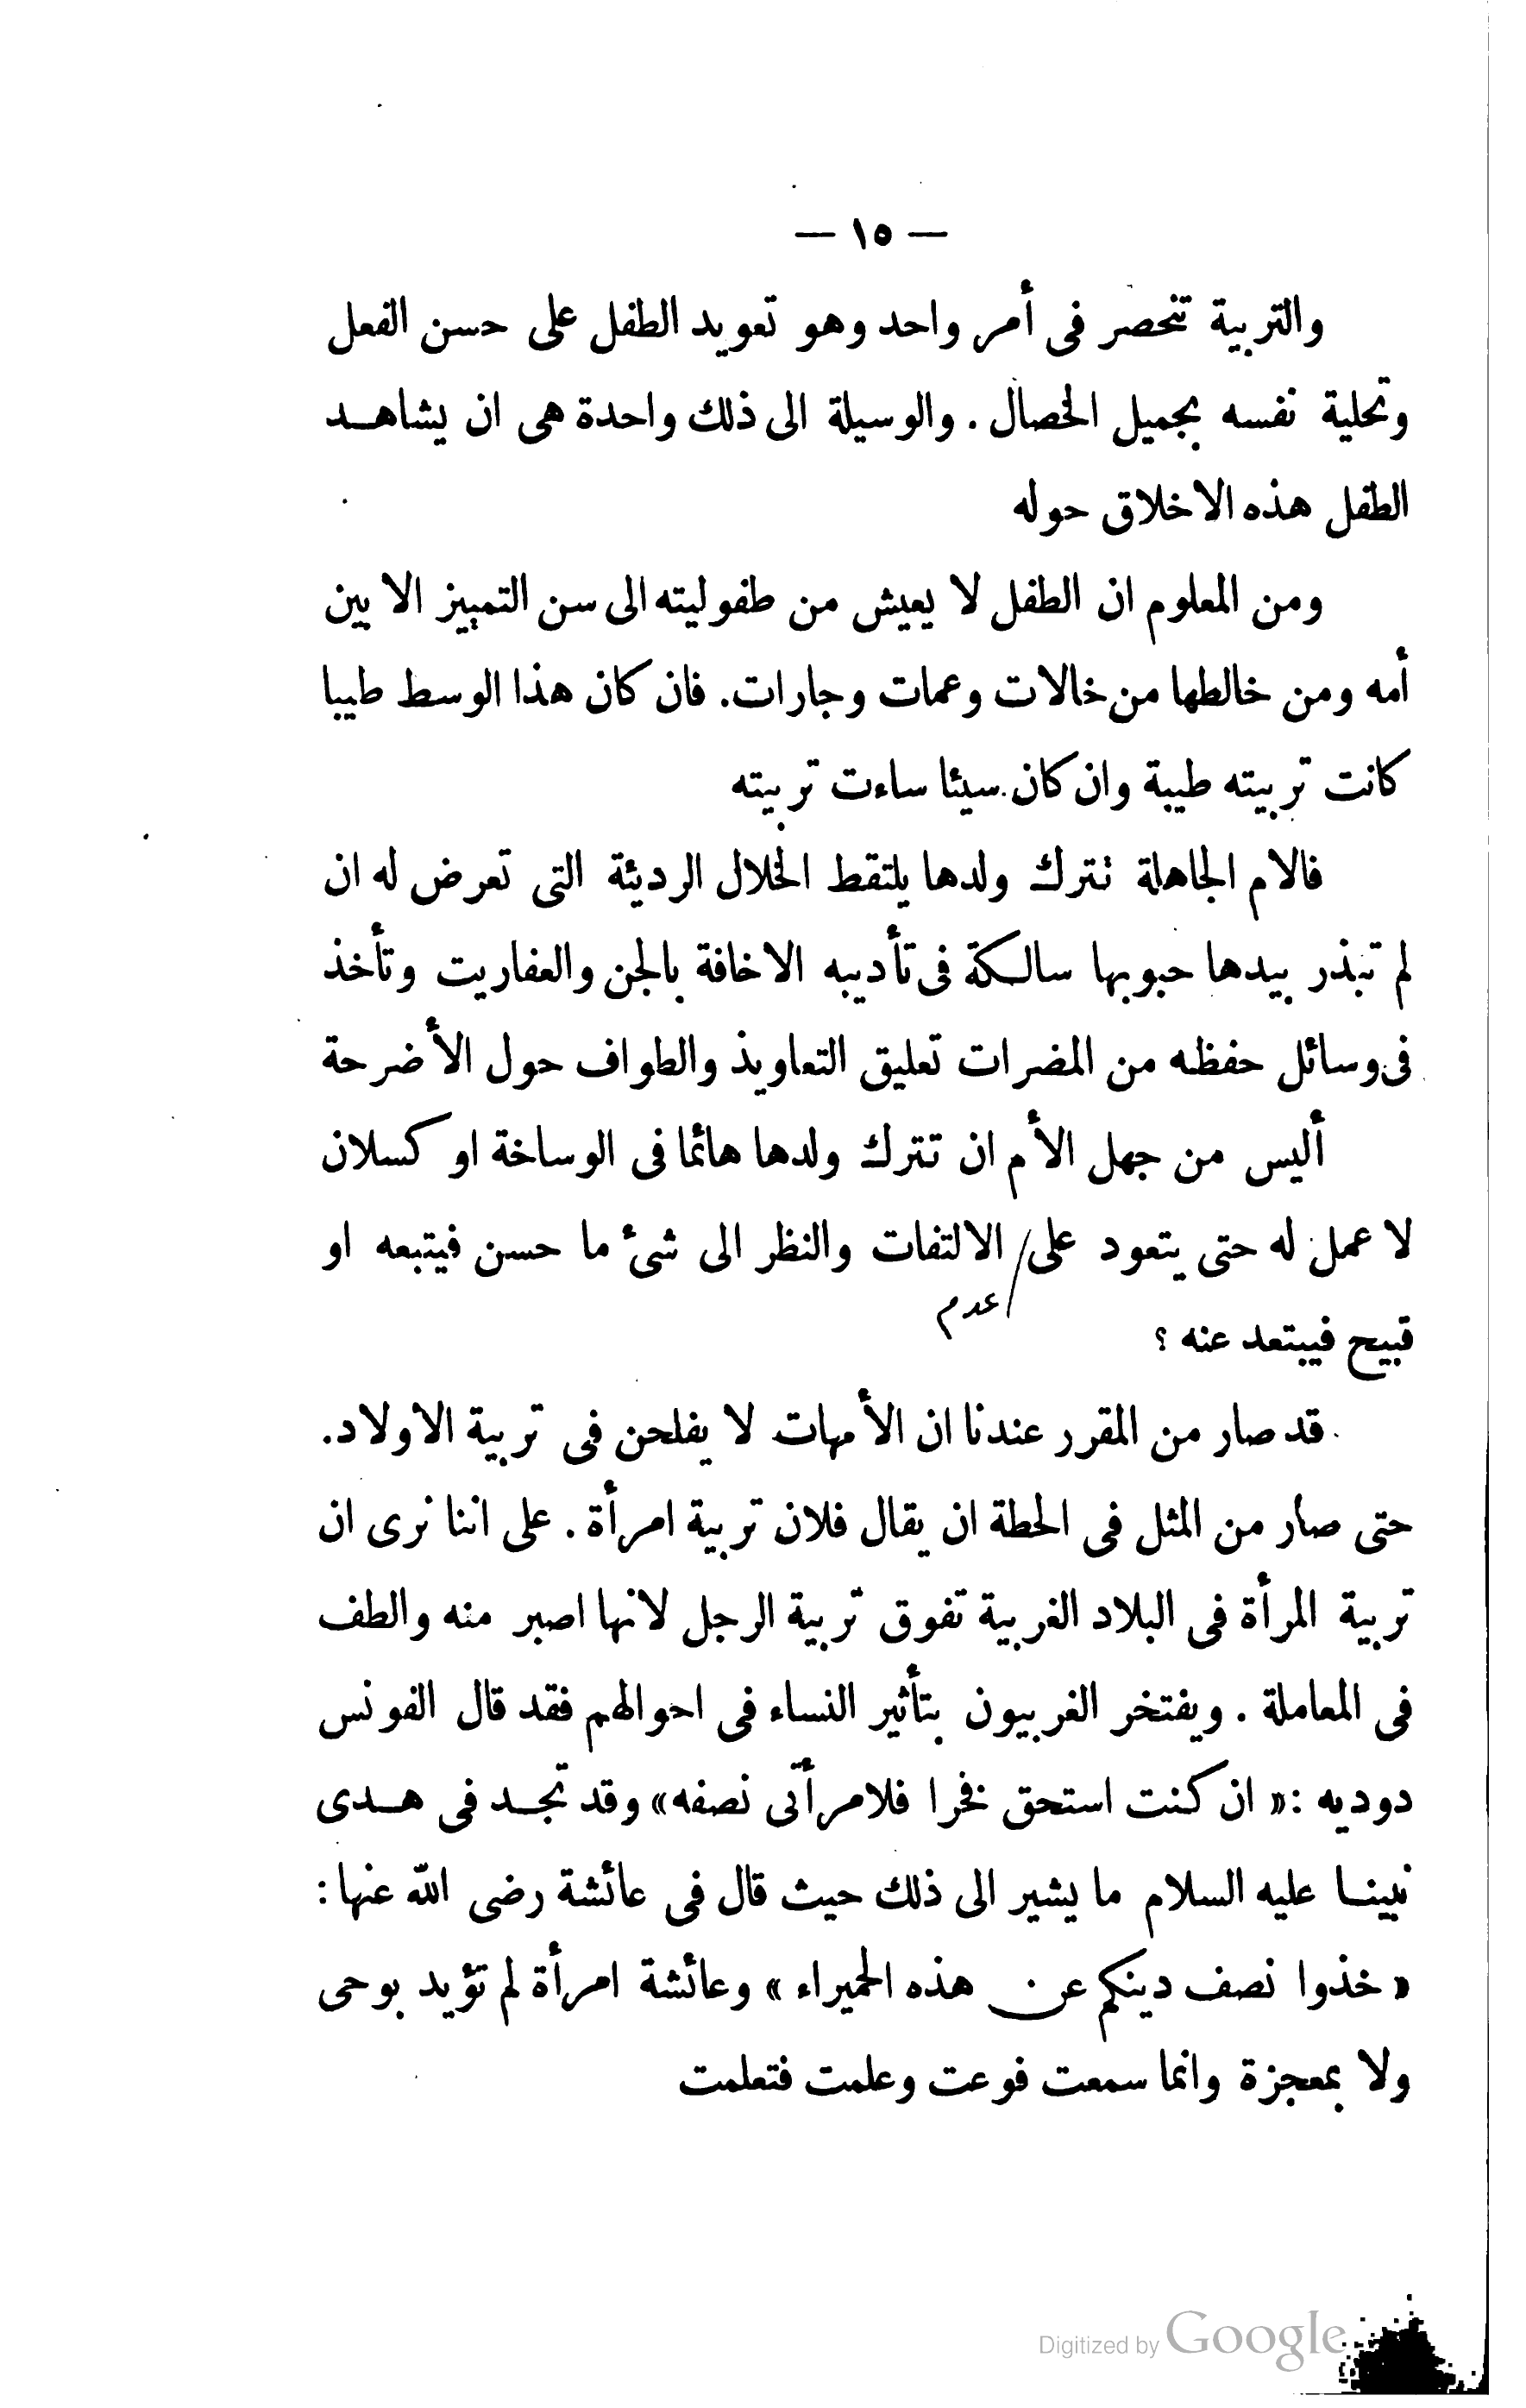 — ١٥ —
والتربية تنحصر فى أمر واحد وهو تعويد الطفل على حسن الفعل
وتحلية نفسه بجميل الخصال . والوسيلة الى ذلك واحدة هى ان يشاهـد
الطفل هذه الاخلاق حوله
ومن المعلوم ان الطفل لا يعيش من طفوليته الى سن التمييز الا بين
أمه ومن خالطها من خالات وعمات وجارات. فان كان هذا الوسط طيبا
كانت تربيته طيبة وان كان سيئا ساءت تربيته
فالام الجاهلة تترك ولدها يلتقط الخلال الرديئة التى تعرض له ان
لم تبذر بيدها حبوبها سالكة فى تأديبه الاخافة بالجن والعفاريت وتأخذ
فى وسائل حفظه من المضرات تعليق التعاويذ والطواف حول الأضرحة
أليس من جهل الأم ان تترك ولدها هائما فى الوساخة او كسلان
لا عمل له حتى يتعود على / الالتفات والنظر الى شئ ما حسن فيتبعه او
/ عدم
قبيح فيبتعد عنه ؟
قد صار من المقرر عندنا ان الأمهات لا يفلحن فى تربية الاولاد.
حتى صار من المثل فى الحطة ان يقال فلان تربية امرأة . على اننا نرى ان
تربية المرأة فى البلاد الغربية تفوق تربية الرجل لانها اصبر منه والطف
فى المعاملة . ويفتخر الغربيون بتأثير النساء فى احوالهم فقد قال الفونس
دوديه :« ان كنت استحق فخرا فلامرأتى نصفه» وقد تجـد فى هـدى
نبينـا عليه السلام ما يشير الى ذلك حيث قال فى عائشة رضى الله عنها :
« خذوا نصف دينكم عن هذه الحميراء » وعائشة امرأة لم تؤيد بوحى
ولا بمعجزة وانما سمعت فوعت وعلمت فتعلمت
Digitized by Google